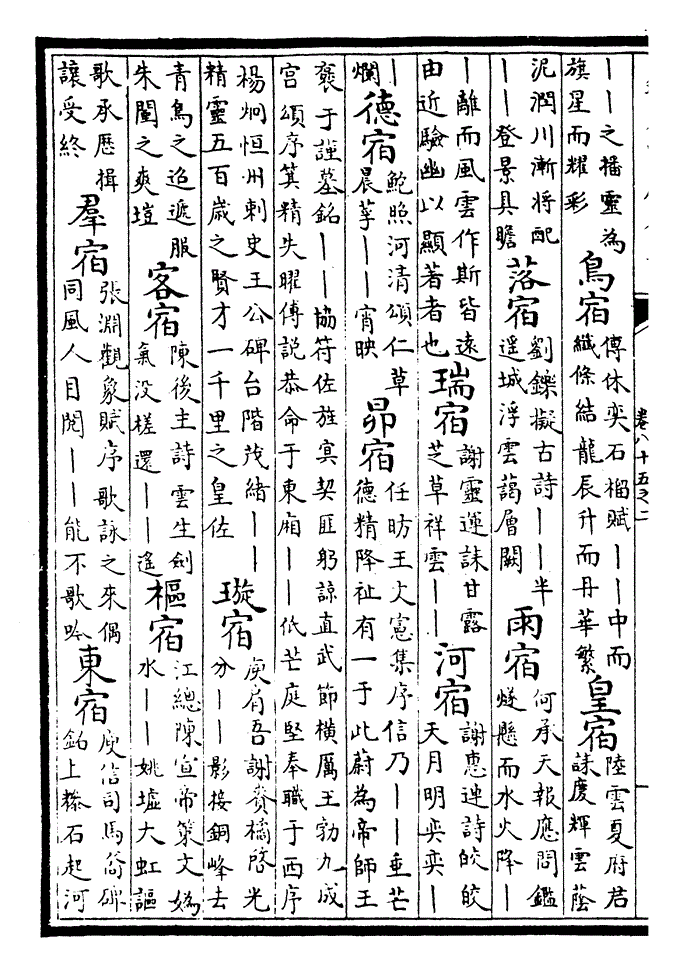 ｜｜之播靈為
旗星而耀彩
鳥宿
傅休奕石榴賦｜｜中而
纖條結龍辰升而丹華繁
皇宿
陸雲夏府君
誄慶輝雲蔭
泥潤川漸將配
｜｜登景具瞻
落宿
劉鑠擬古詩｜｜半
遥城浮雲藹層闕
雨宿
何承天報應問鑑
燧懸而水火降｜
｜離而風雲作斯皆遠
由近驗幽以顯著者也
瑞宿
謝靈運誄甘露
芝草祥雲｜｜
河宿
謝惠連詩皎皎
天月明奕奕｜
｜
爛
德宿
鮑照河清頌仁草
晨莩｜｜宵映
昴宿
任昉王文憲集序信乃｜｜垂芒
德精降祉有一于此蔚為帝師王
褒于謹墓銘｜｜協符佐旌寅契匪躬諒直武節橫厲王勃九成
宫頌序箕精失曜傅説恭命于東廂｜｜低芒庭堅奉職于西序
楊炯恒州刺史王公碑台階茂緒｜｜
精靈五百歲之賢才一千里之皇佐
璇宿
庾肩吾謝賚橘啓光
分｜｜影接銅峰去
青鳥之迢遞服
朱闉之爽塏
客宿
陳後主詩雲生劍
氣没槎還｜｜遥
樞宿
江總陳宣帝策文媯
水｜｜姚墟大虹謳
歌承歷揖
讓受終
羣宿
張淵觀象賦序歌詠之來偶
同風人目閱｜｜能不歌吟
東宿
庾信司馬裔碑
銘上
石起河
卷八十五之二